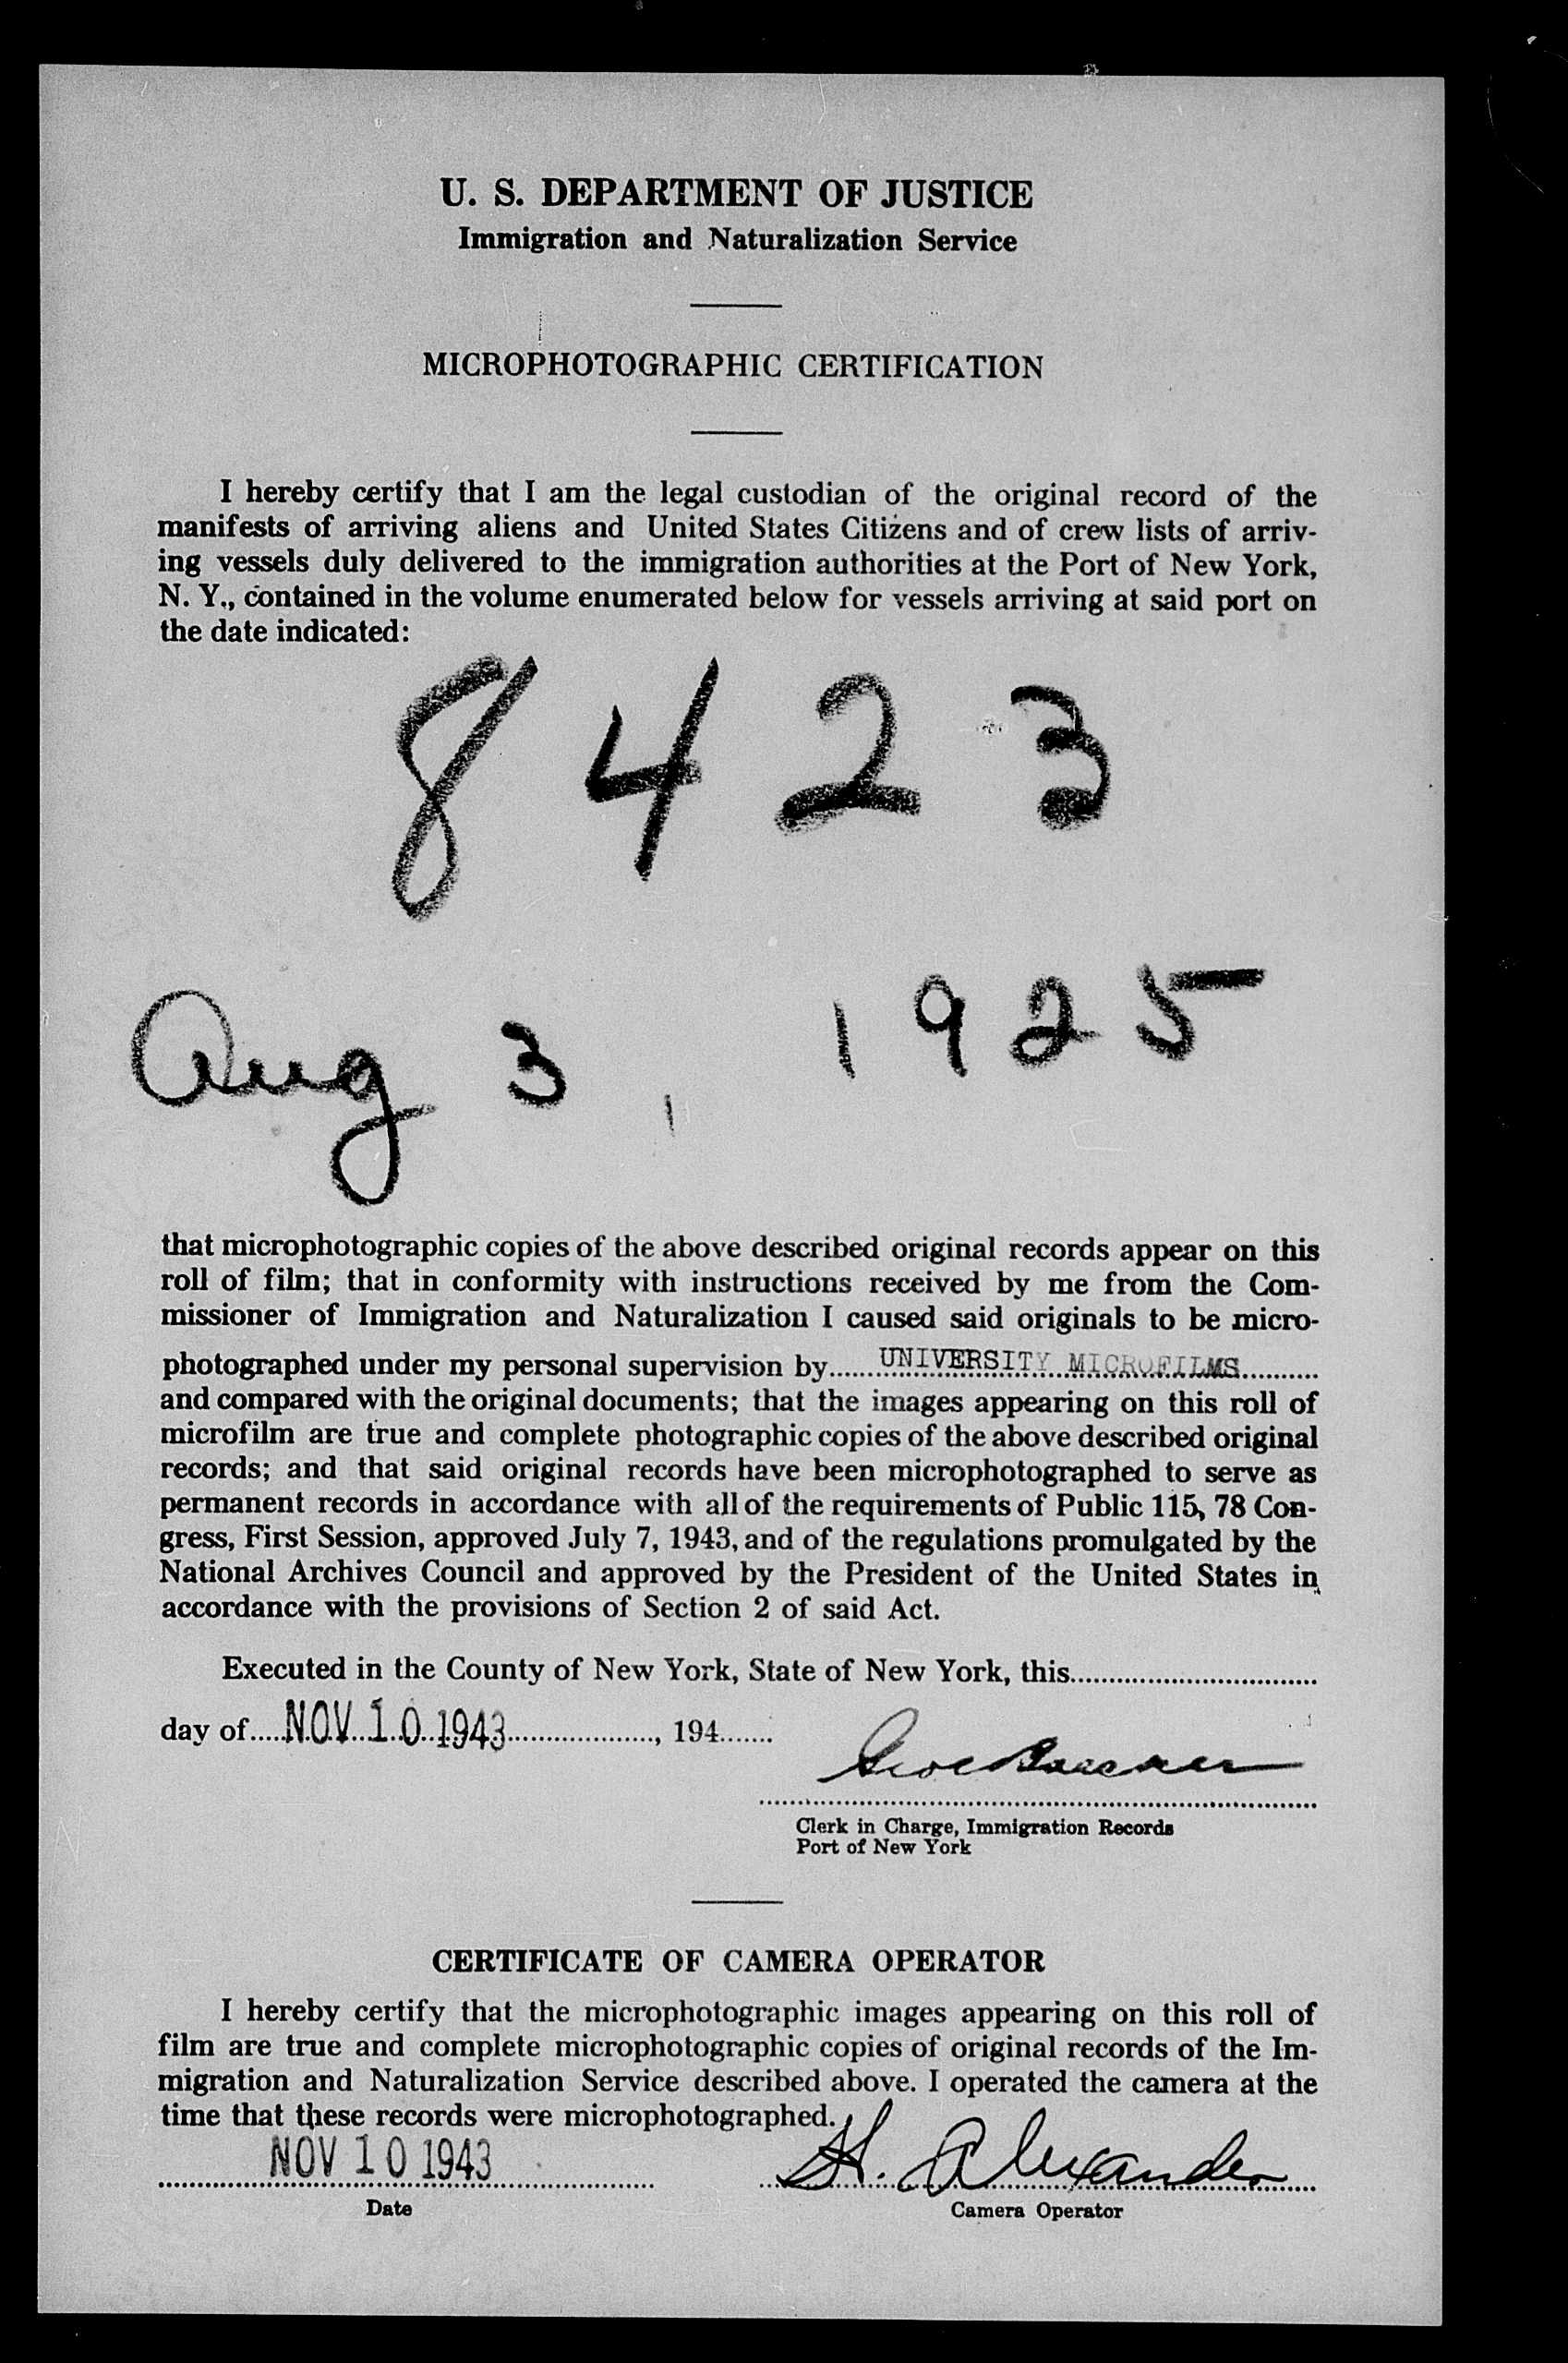 U. S. DEPARTMENT OF JUSTICE
Immigration and Naturalization Service
MICROPHOTOGRAPHIC CERTIFICATION
I hereby certify that I am the legal custodian of the original record of the
manifests of arriving aliens and United States Citizens and of crew lists of arriv-
ing vessels duly delivered to the immigration authorities at the Port of New York,
N. Y., contained in the volume enumerated below for vessels arriving at said port on
the date indicated:
8423
Aug 3, 1925
that microphotographic copies of the above described original records appear on this
roll of film; that in conformity with instructions received by me from the Com-
missioner of Immigration and Naturalization I caused said originals to be micro-
photographed under my personal supervision by UNIVERSITY MICROFILMS
and compared with the original documents; that the images appearing on this roll of
microfilm are true and complete photographic copies of the above described original
records; and that said original records have been microphotographed to serve as
permanent records in accordance with all of the requirements of Public 115, 78 Con-
gress, First Session, approved July 7, 1943, and of the regulations promulgated by the
National Archives Council and approved by the President of the United States in
accordance with the provisions of Section 2 of said Act.
Executed in the County of New York, State of New York, this
day of NOV 10 1943, 194
Clerk in Charge, Immigration Records
Port of New York
CERTIFICATE OF CAMERA OPERATOR
I hereby certify that the microphotographic images appearing on this roll of
film are true and complete microphotographic copies of original records of the Im-
migration and Naturalization Service described above. I operated the camera at the
time that these records were microphotographed.
NOV 10 1943 H. Alexander
Date Camera Operator